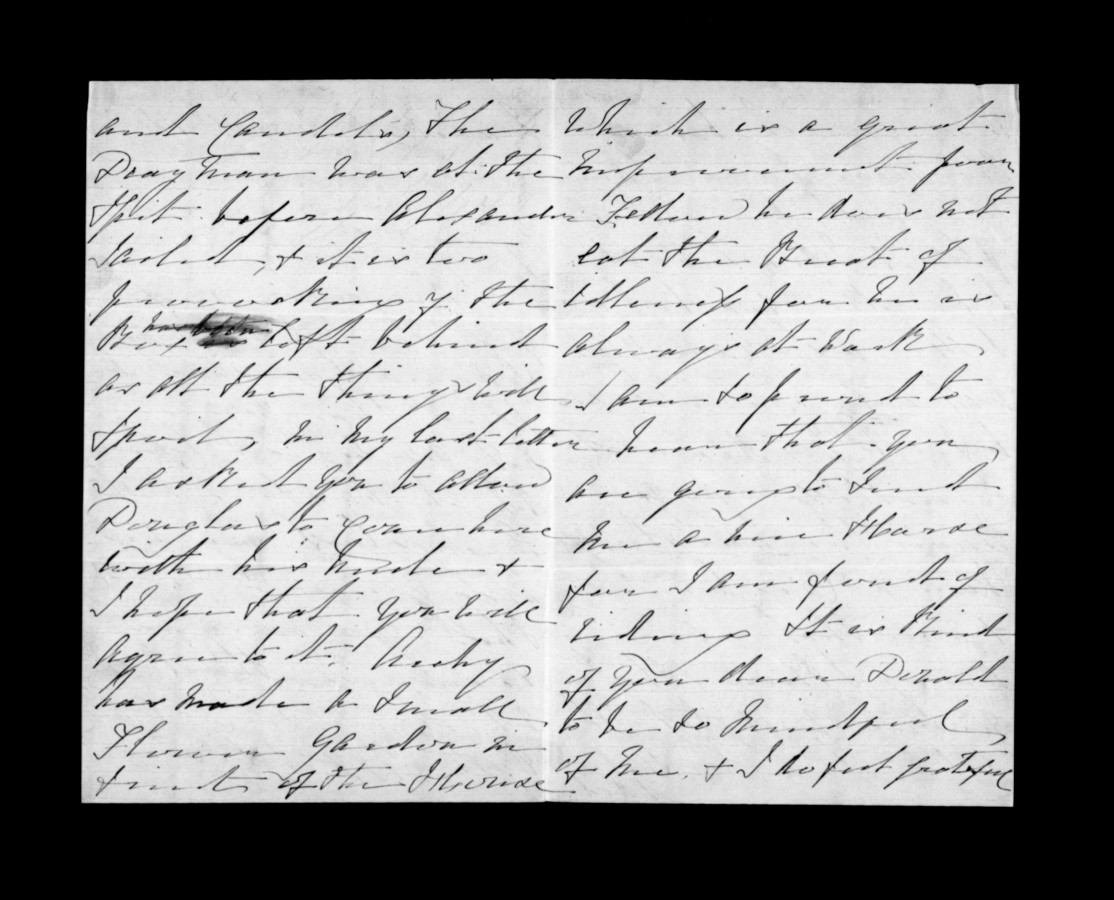 and Candels, the
Drayman was at the
Spit before Alexander
Sailed, & it is two
provoking if the
Box has been left behind
as all the things will
spoil, in my last letter
I asked you to allow
Douglas to come here
with his Uncle &
I hope that you will
agree to it. Archy
has made a small
Flower Garden in
front of the House
which is a great
improvement poor
Fellow he does not
eat the Bread of
idleness for he is
always at Work
I am so proud to
hear that you
are going to send
me a nice Horse
for I am fond of
riding It is Kind
of you dear Donald
to be so mindful
of me, & I do feel grateful